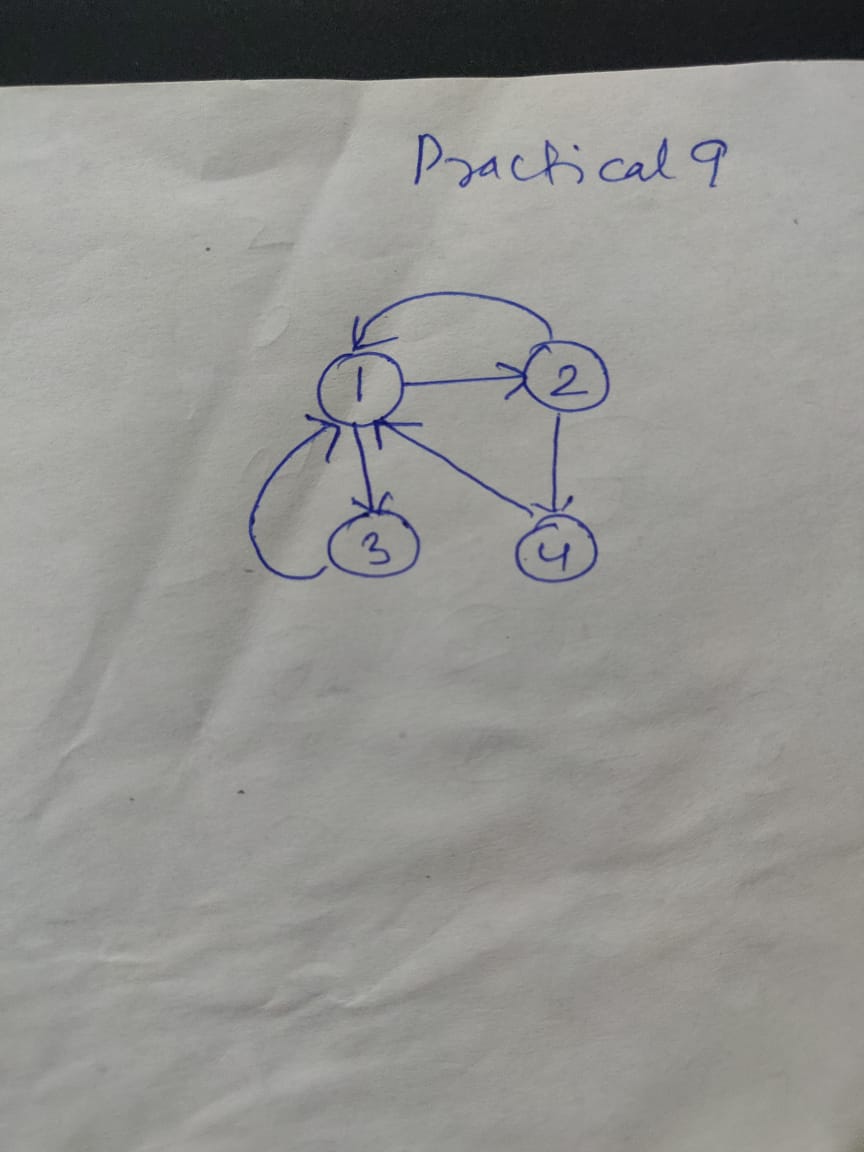 Practical 9
1 2
3 4